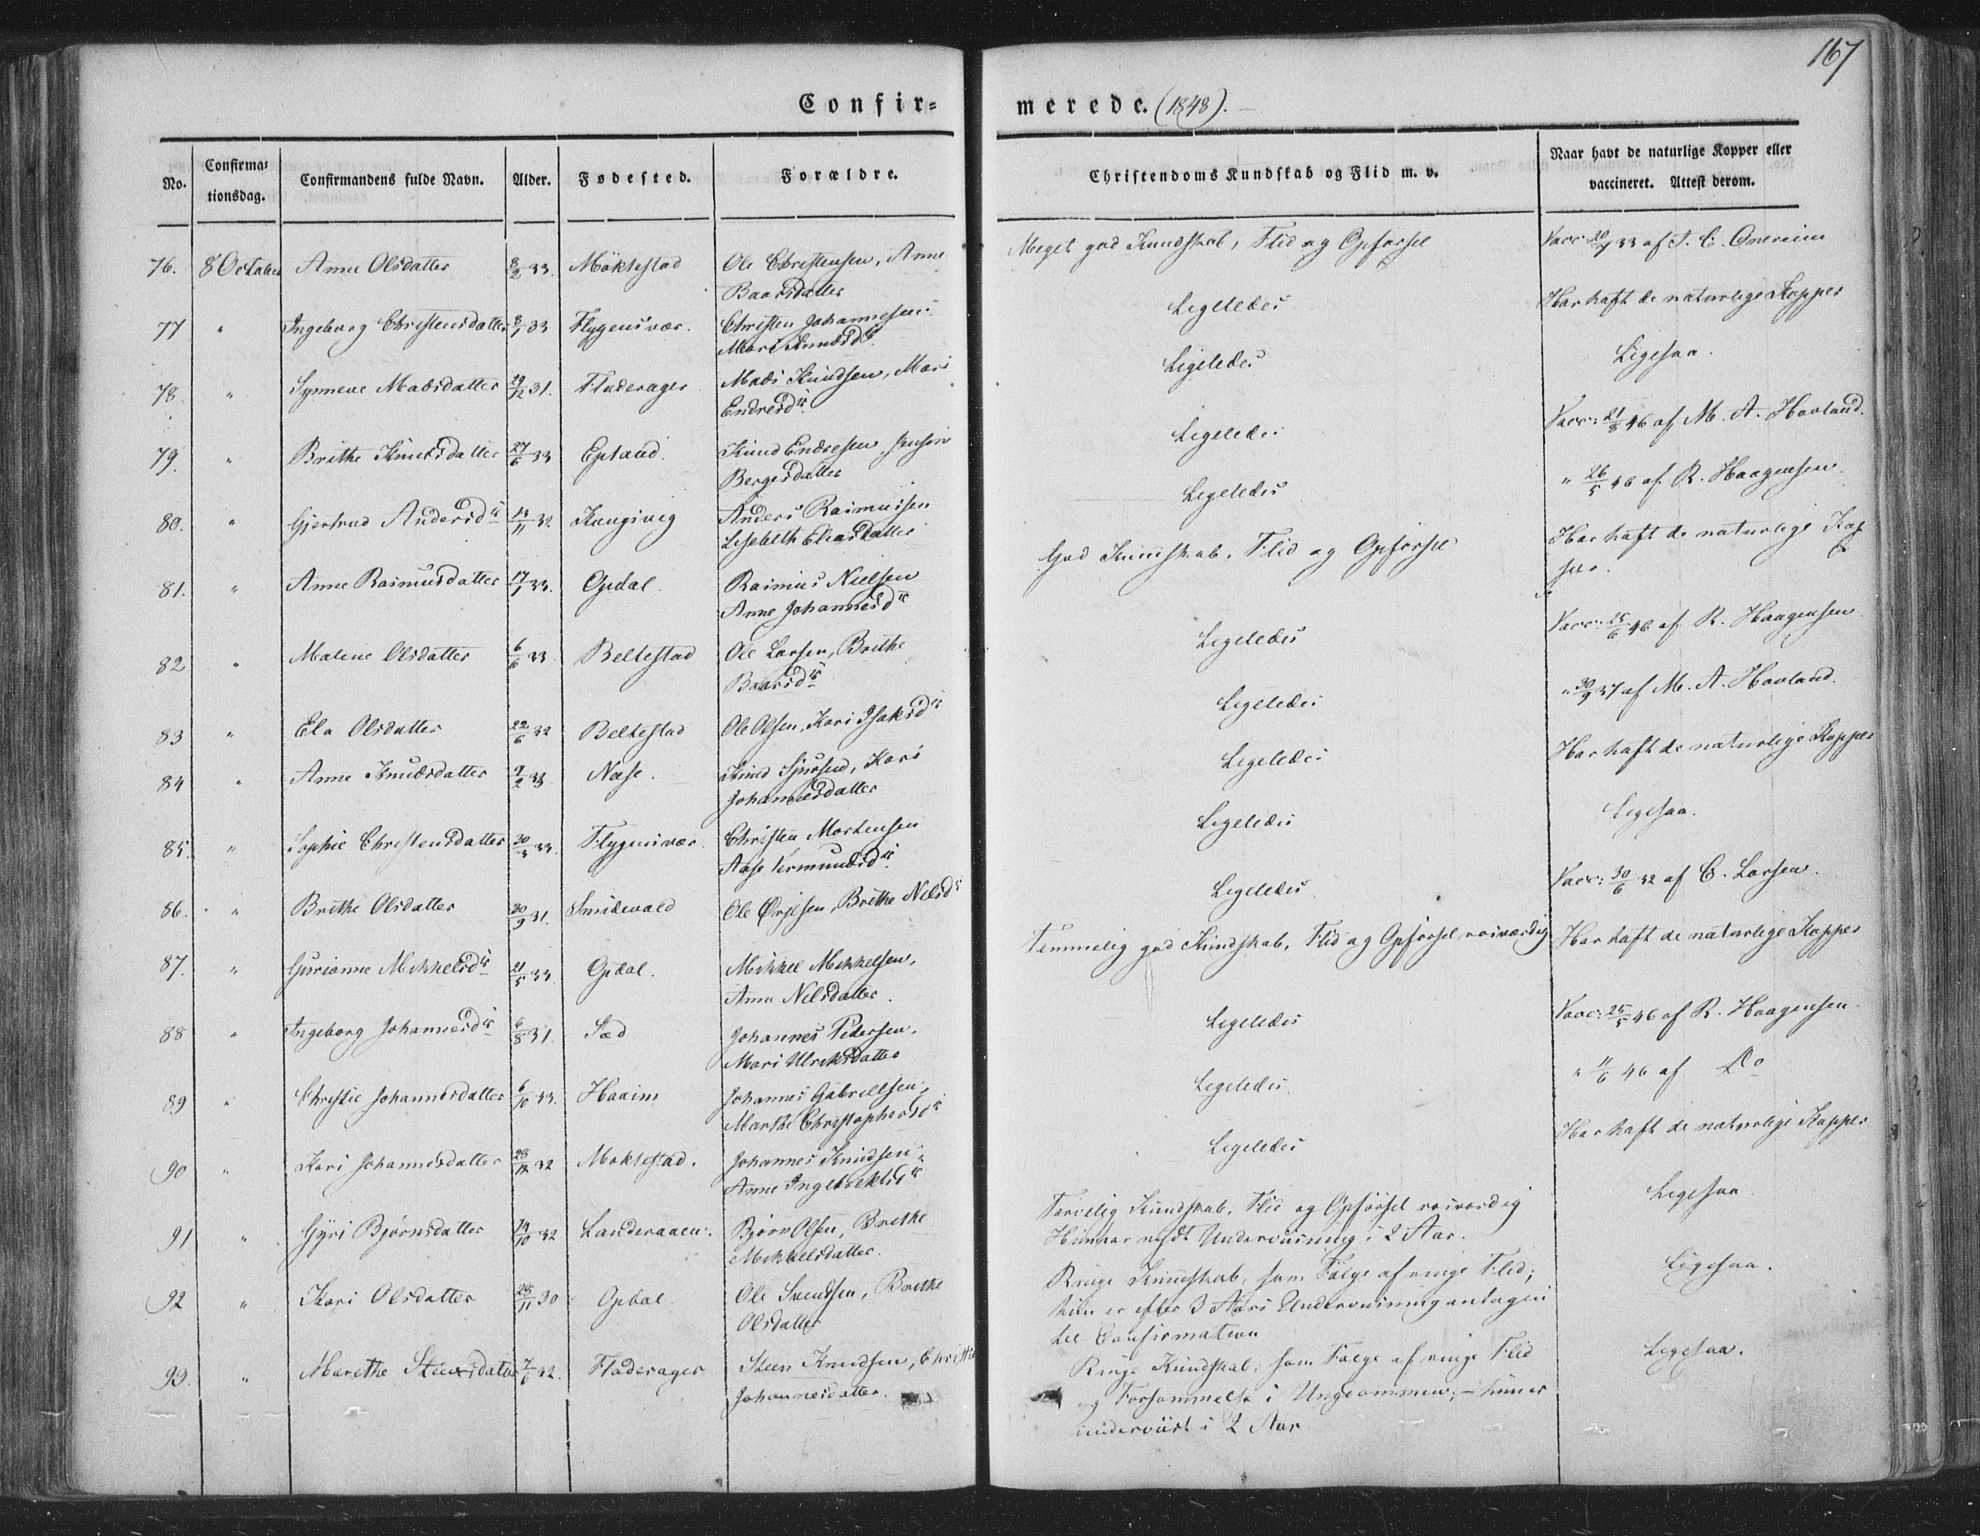 167
Confir-
merede. (1848). —
No.
Confirma-
tionsdag.
Confirmandens fulde Navn.
Alder.
Fødested.
Forældre.
Christendoms Kundskab og Flid m. v.
Naar havt de naturlige Kopper eller
vaccineret. Attest derom.
76. 8 October Anne Olsdatter 8/2 33. Möktestad Ole Christensen, Anne
Baarsdatter
Meget god Kundskab, Flid og Opførsel
Vacc: 20/7 33 af J. C. Qvereim
77 " Ingeborg Christensdatter 8/1 33 Flygensvær. Christen Johannesen.
Mari Knudsd tr
Ligeledes
Har haft de naturlige Kopper
78. " Synneve Madsdatter 29/12 31. Fladerager Mads Knudsen, Mari
Endresd tr
Ligeledes
Ligesaa.
79. " Brithe Knudsdatter 27/6 33 Epland. Knud Endresen
Bergesdatter
Ligeledes
Vacc: 21/8 46 af M. A. Hovland.
80. " Gjertrud Andersd tr 13/11 32. Anders Rasmusen
Lisebeth Eliasdatter
Ligeledes
" 26/5 46 af R. Haagensen.
81. " Anne Rasmusdatter 17/1 33. Opdal. Rasmus Nielsen
Anne Johannesd tr
God Kundskab, Flid og Opførsel
Har haft de naturlige Kop
per.
82 " Malene Olsdatter 6/6 33 Beltestad Ole Larsen, Brithe
Baarsd tr
Ligeledes
Vacc: 25/6 46 af R. Haagensen.
83 " Ela Olsdatter 22/6 32 Beltestad Ole Olsen, Kari Isaksd tr
Ligeledes
" 30/9 37 af M. A. Hovland.
84 " Anne Knudsdatter 9/2 33. Næse. Knud Sjursen, Kari
Johannesdatter
Ligeledes
Har haft de naturlige Kopper
85. " Sophie Christensdatter 30/3 33. Flygensvær. Christen Mortensen
Aase Vermundsd tr
Ligeledes
Ligesaa.
86. " Brithe Olsdatter 20/9 31. Smidevald Ole Ørjesen, Brithe Nilsd tr
Ligeledes
Vacc: 30/6 32 af C. Larsen.
87. " Gurianne Mikkelsd tr 21/5 33. Opdal. Mikkel Mikkelsen,
Anna Nilsdatter.
Temmelig god Kundskab, Flid og Opførsel rosværdig
Har haft de naturlige Kopper
88 " Ingeborg Johannesd tr 6/8 31. Sæd Johannes Pedersen,
Mari Ulriksdatter
Ligeledes
Vacc: 25/5 46 af R. Haagensen.
89 " Christie Johannesdatter 6/10 33. Haaim Johannes Gabrielsen,
Marthe Christophersd tr
Ligeledes
" 11/6 46 af Do
90 " Kari Johannesdatter 28/12 32 Moktestad. Johannes Knudsen,
Anne Ingebrektsd tr
Ligeledes
Har haft de naturlige Kopper
91 " Gyri Bjørnsdatter 14/10 32 Landeraaen. Bjørn Olsen, Brithe
Mikkelsdatter.
Tarvelig Kundskab, Flid og Opførsel rosværdig
Hun har nydt Underviisning i 2 Aar.
Ligesaa
92 " Kari Olsdatter 28/11 30 Opdal. Ole Svendsen, Brithe
Olsdatter
Ringe Kundskab, som Følge af ringe Flid;
hun er efter 3 Aars Underviisning antagen
til Confirmation
Ligesaa.
93. " Marethe Steensdatter 7/6 32. Fladerager Steen Knudsen, Christie
Johannesdatter.
Ringe Kundskab, som Følge af ringe Flid
og Forsømmelse i Ungdommen; – hun er
underviist i 2 Aar
Ligesaa.